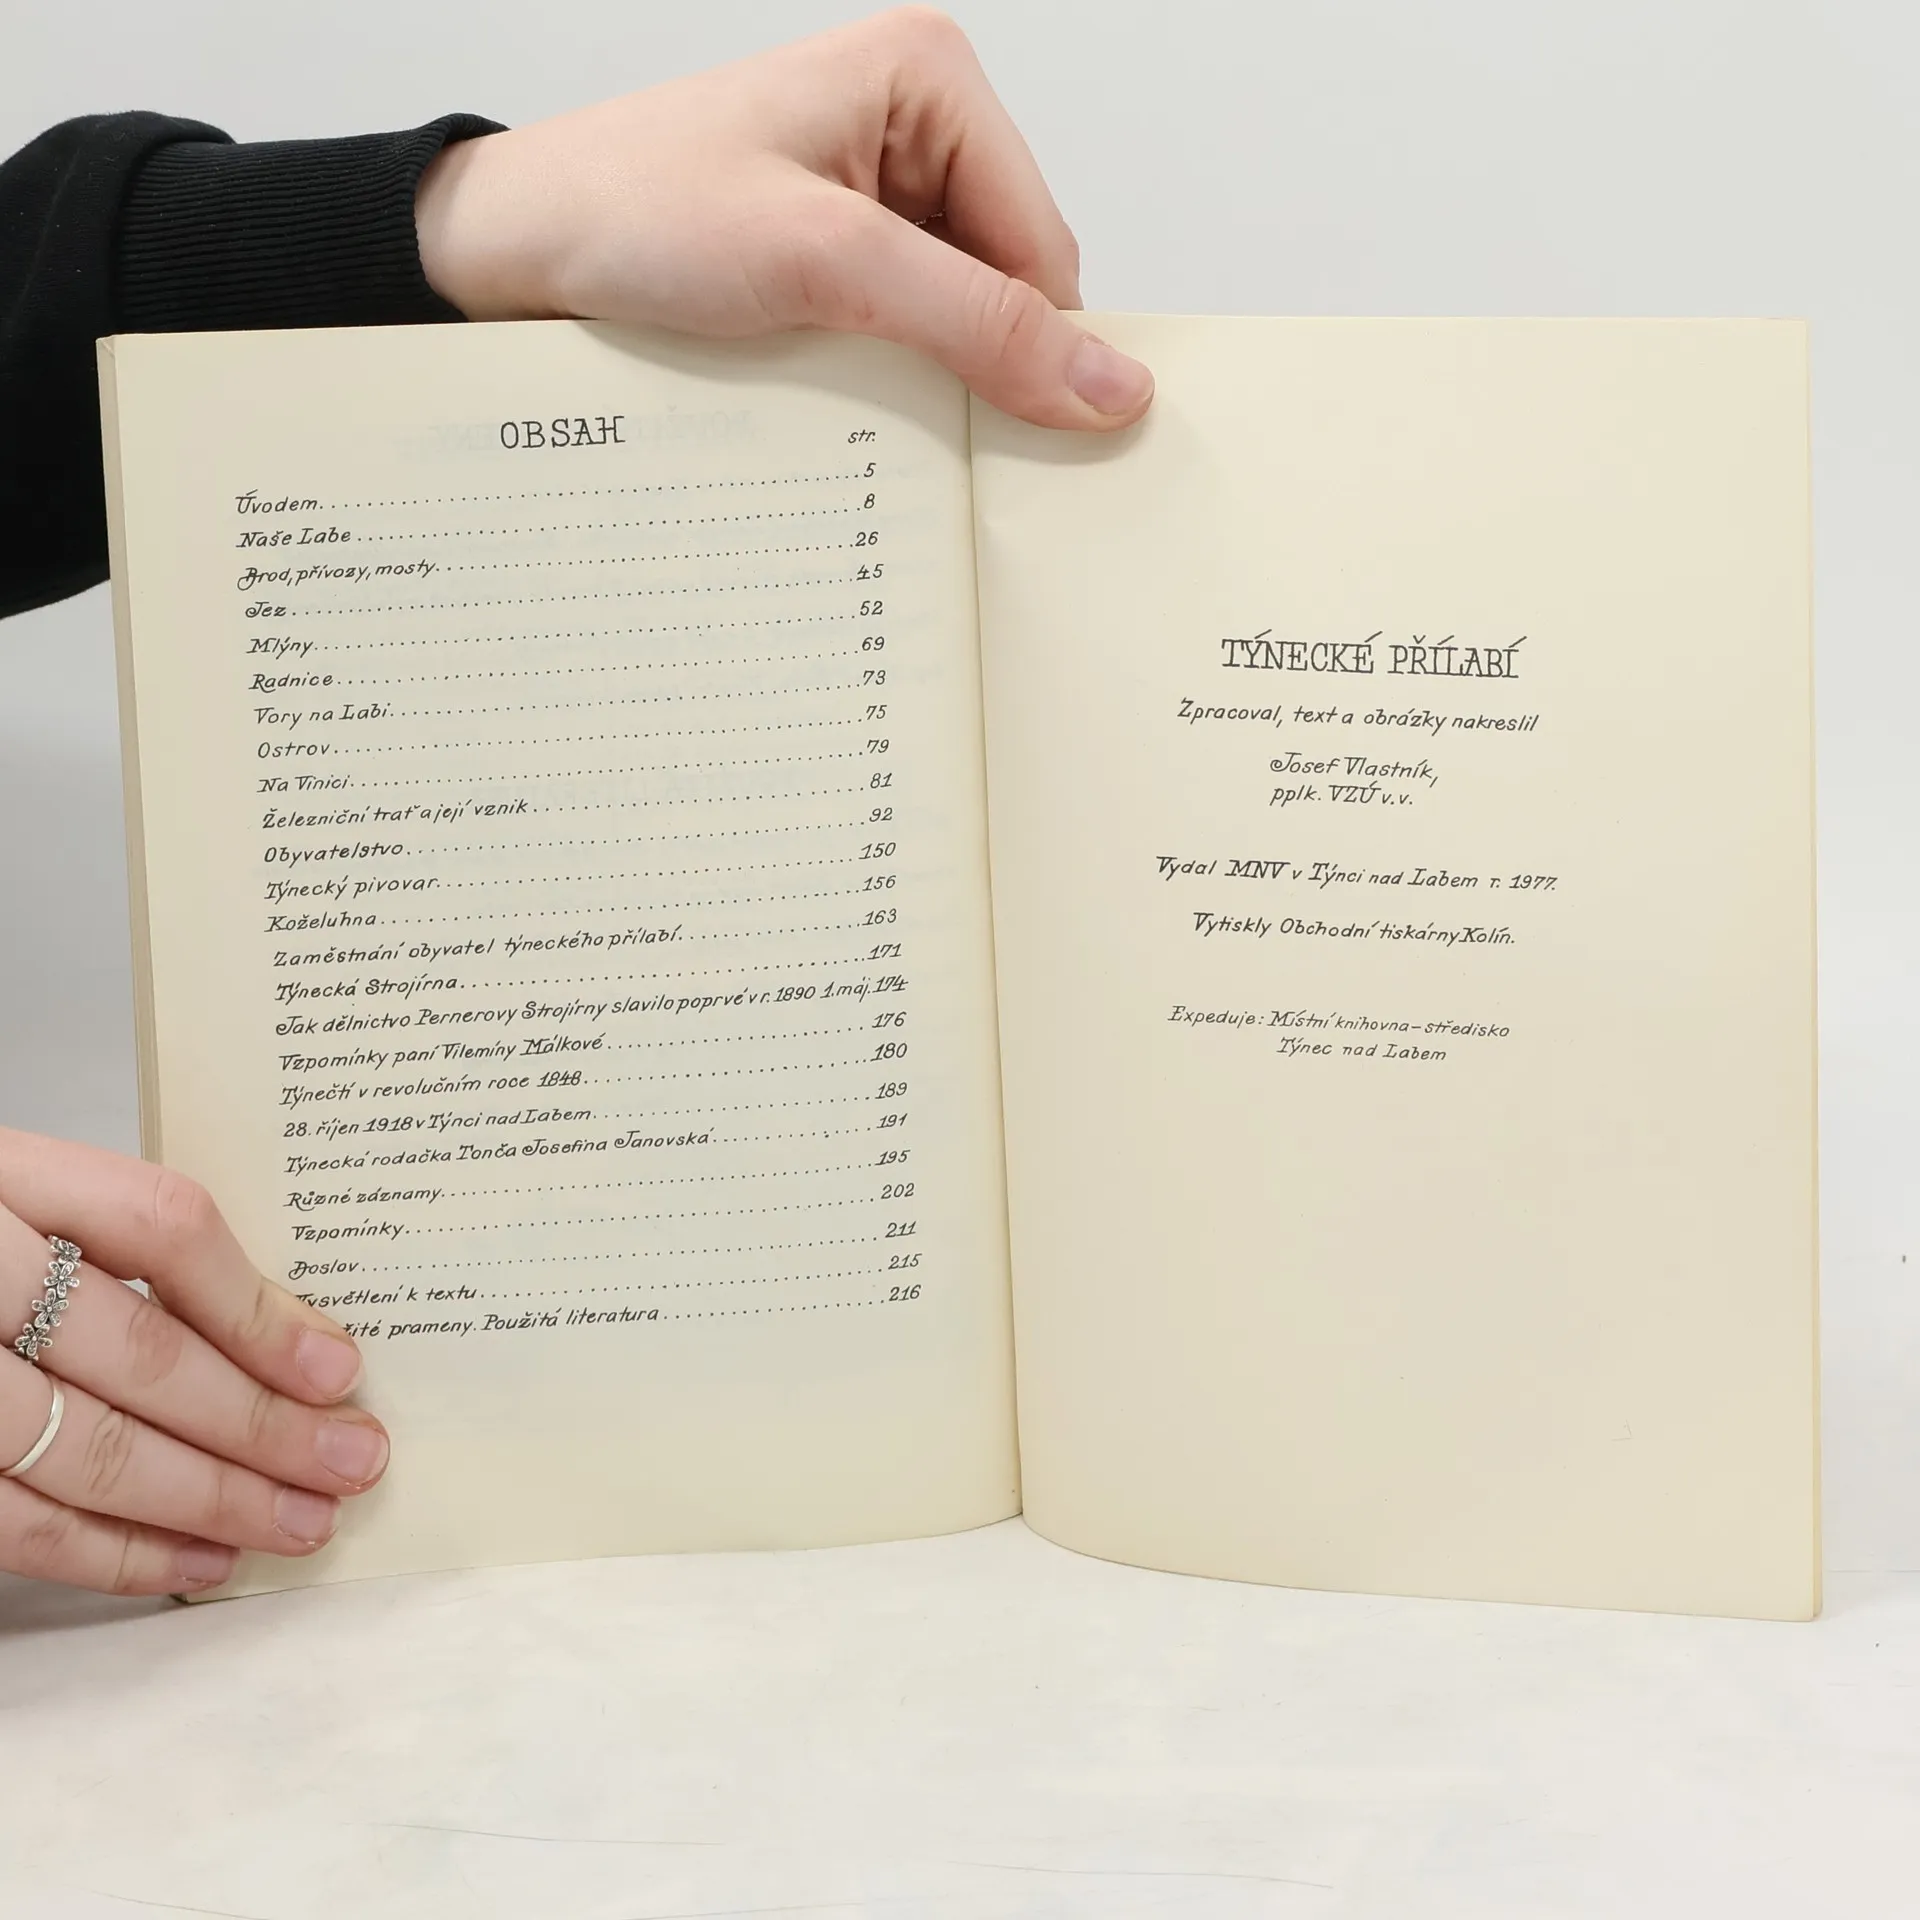 OBSAH
str.
Úvodem. . . . . . . . . . . . . . . . . . . . 5
Naše Labe . . . . . . . . . . . . . . . . . . . . 8
Brod, přívozy, mosty. . . . . . . . . . . . . . . . . . . . 26
Jez . . . . . . . . . . . . . . . . . . . . 45
Mlýny. . . . . . . . . . . . . . . . . . . . 52
Radnice. . . . . . . . . . . . . . . . . . . . 69
Vory na Labi. . . . . . . . . . . . . . . . . . . . 73
Ostrov. . . . . . . . . . . . . . . . . . . . 75
Na Vinici. . . . . . . . . . . . . . . . . . . . 79
Železniční trať a její vznik . . . . . . . . . . . . . . . . . . . . 81
Obyvatelstvo. . . . . . . . . . . . . . . . . . . . 92
Týnecký pivovar. . . . . . . . . . . . . . . . . . . . 150
Koželuhna . . . . . . . . . . . . . . . . . . . . 156
Zaměstnání obyvatel týneckého přílabí. . . . . . . . . . . . 163
Týnecká Strojírna. . . . . . . . . . . . . . . . . . . . 171
Jak dělnictvo Pernerovy Strojírny slavilo poprvé v r. 1890 1. máj. 174
Vzpomínky paní Vilemíny Málkové . . . . . . . . . . . . 176
Týnečtí v revolučním roce 1848. . . . . . . . . . . . 180
28. říjen 1918 v Týnci nad Labem. . . . . . . . . . . . 189
Týnecká rodačka Tonča Josefina Janovská. . . . . . . . . . 191
Různé záznamy. . . . . . . . . . . . . . . . . . . . 195
Vzpomínky. . . . . . . . . . . . . . . . . . . . 202
Doslov. . . . . . . . . . . . . . . . . . . . 211
Vysvětlení k textu . . . . . . . . . . . . . . . . . . . . 215
prameny. Použitá literatura . . . . . . . . . . . . 216
TÝNECKÉ PŘÍLABÍ
Zpracoval, text a obrázky nakreslil
Josef Vlastník,
pplk. VZÚ v.v.
Vydal MNV v Týnci nad Labem r. 1977.
Vytiskly Obchodní tiskárny Kolín.
Expeduje: Místní knihovna-středisko
Týnec nad Labem